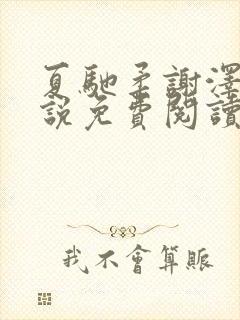 夏馳柔謝澤
說免費閱讀
我不會算賬